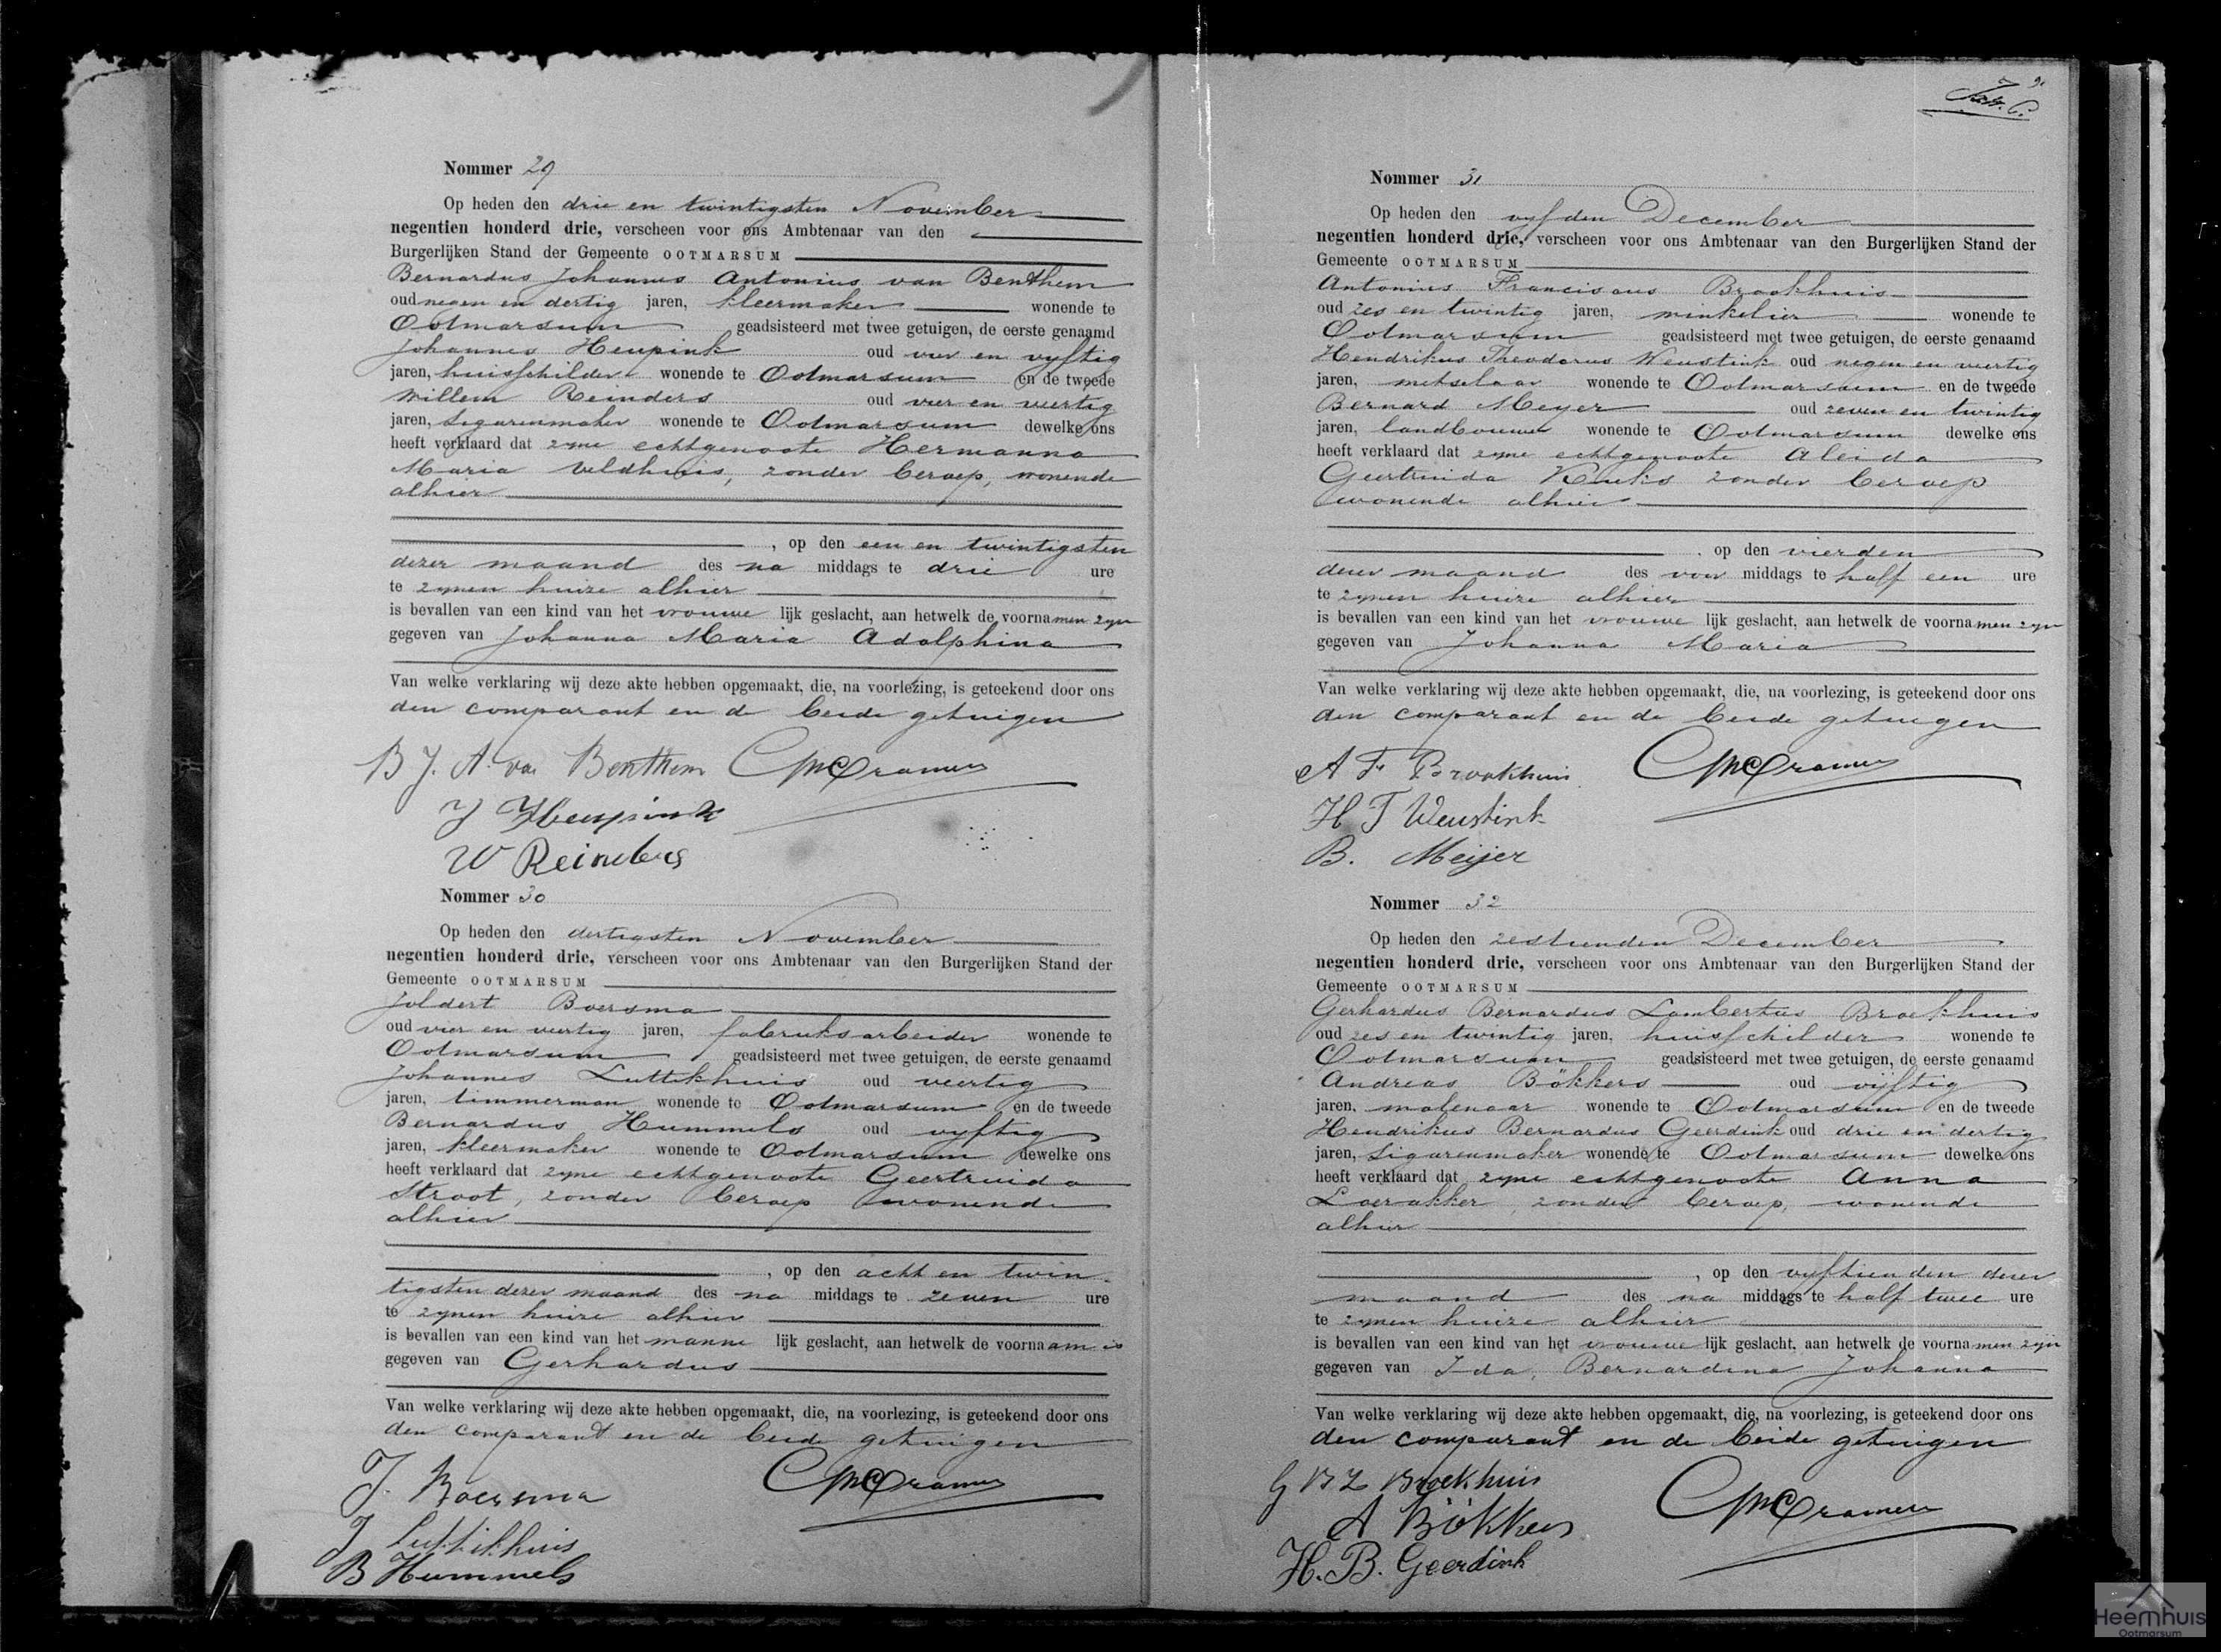 Nommer 29
Op heden den drie en twintigsten November
negentien honderd drie, verscheen voor ons Ambtenaar van den
Burgerlijken Stand der Gemeente OOTMARSUM
Bernardus Johannes Antonius van Benthem
oud negen en dertig jaren, kleermaker wonende te
Ootmarsum geadsisteerd met twee getuigen, de eerste genaamd
Johannes Heupink oud vier en vyftig
jaren, huisschilder wonende te Ootmarsum en de tweede
Willem Reinders oud vier en veertig
jaren, sigarenmaker wonende te Ootmarsum dewelke ons
heeft verklaard dat zyne echtgenoote Hermanna
Maria Veldhuis, zonder beroep, wonende
alhier
, op den een en twintigsten
dezer maand des na middags te drie ure
te zynen huize alhier
is bevallen van een kind van het vrouwe lijk geslacht, aan hetwelk de voornamen zyn
gegeven van Johanna Maria Adolphina
Van welke verklaring wij deze akte hebben opgemaakt, die, na voorlezing, is geteekend door ons
den comparant en de beide getuigen
B J. A. van Benthem Cramer
J Heupink
W Reinders
Nommer 30
Op heden den dertigsten November
negentien honderd drie, verscheen voor ons Ambtenaar van den Burgerlijken Stand der
Gemeente OOTMARSUM
Joldert Boersma
oud vier en veertig jaren, fabrieksarbeider wonende te
Ootmarsum geadsisteerd met twee getuigen, de eerste genaamd
Johannes Luttikhuis oud veertig
jaren, timmerman wonende te Ootmarsum en de tweede
Bernardus Hummels oud vyftig
jaren, kleermaker wonende te Ootmarsum dewelke ons
heeft verklaard dat zyne echtgenoote Geertruida
Stroot, zonder beroep wonende
alhier
, op den acht en twin
tigsten dezer maand des na middags te zeven ure
te zynen huize alhier
is bevallen van een kind van het manne lijk geslacht, aan hetwelk de voornaam is
gegeven van Gerhardus
Van welke verklaring wij deze akte hebben opgemaakt, die, na voorlezing, is geteekend door ons
den comparant en de beide getuigen
J. Boersma Cramer
J Luttikhuis
B Hummels
Nommer 31
Op heden den vyfden December
negentien honderd drie, verscheen voor ons Ambtenaar van den Burgerlijken Stand der
Gemeente OOTMARSUM
Antonius Franciscus Brookhuis
oud zes en twintig jaren, winkelier wonende te
Ootmarsum geadsisteerd met twee getuigen, de eerste genaamd
Hendrikus Theodorus Weustink oud negen en veertig
jaren, metselaar wonende te Ootmarsum en de tweede
Bernard Meyer oud zeven en twintig
jaren, landbouwer wonende te Ootmarsum dewelke ons
heeft verklaard dat zyne echtgenoote Aleida
Geertruida Kuiks zonder beroep
wonende alhier
, op den vierden
dezer maand des voor middags te half een ure
te zynen huize alhier
is bevallen van een kind van het vrouwe lijk geslacht, aan hetwelk de voornamen zyn
gegeven van Johanna Maria
Van welke verklaring wij deze akte hebben opgemaakt, die, na voorlezing, is geteekend door ons
den comparant en de beide getuigen
A F Brookhuis Cramer
H T Weustink
B. Meijer
Nommer 32
Op heden den zestienden December
negentien honderd drie, verscheen voor ons Ambtenaar van den Burgerlijken Stand der
Gemeente OOTMARSUM
Gerhardus Bernardus Lambertus Broekhuis
oud zes en twintig jaren, huisschilder wonende te
Ootmarsum geadsisteerd met twee getuigen, de eerste genaamd
Andreas Bökkers oud vijftig
jaren, molenaar wonende te Ootmarsum en de tweede
Hendrikus Bernardus Geerdink oud drie en dertig
jaren, sigarenmaker wonende te Ootmarsum dewelke ons
heeft verklaard dat zyne echtgenoote Anna
Loerakker, zonder beroep, wonende
alhier
, op den vyftienden dezer
maand des na middags te half twee ure
te zynen huize alhier
is bevallen van een kind van het vrouwe lijk geslacht, aan hetwelk de voornamen zijn
gegeven van Ida, Bernardina Johanna
Van welke verklaring wij deze akte hebben opgemaakt, die, na voorlezing, is geteekend door ons
den comparant en de beide getuigen
G B L Broekhuis Cramer
A Bökkers
H. B. Geerdink
Heemhuis
Ootmarsum